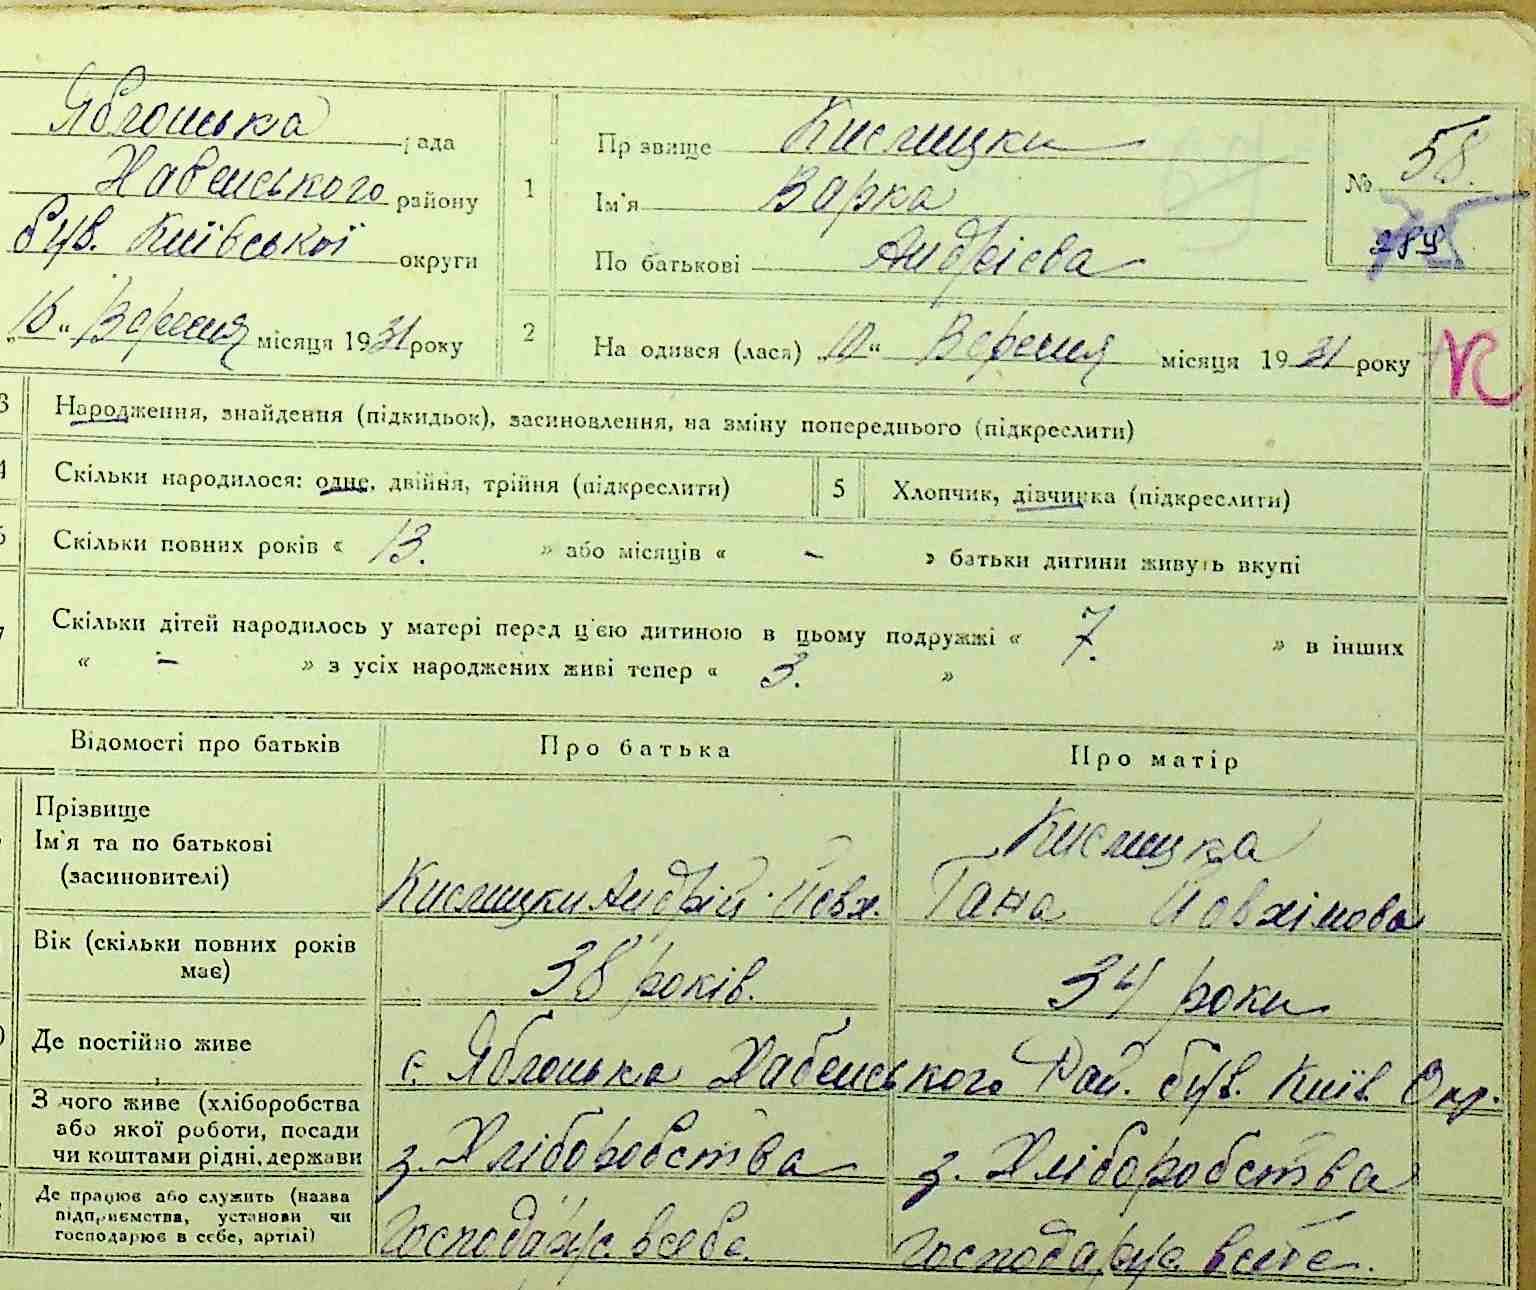 Яблонська рада
Хабенського району
був. Київської округи
„10" Вересня місяця 1931 року
1
Прізвище Кислицки
Ім'я Варка
По батькові Андрієва
№ 58.
289
2
Народився (лася) 10" Вересня місяця 1931 року
3 Народження, знайдення (підкидьок), засиновлення, на зміну попереднього (підкреслити)
4 Скільки народилося: одне, двійня, трійня (підкреслити)
5 Хлопчик, дівчинка (підкреслити)
6 Скільки повних років « 13. » або місяців « - » батьки дитини живуть вкупі
7 Скільки дітей народилось у матері перед ц'єю дитиною в цьому подружжі « 7. » в інших
« - » з усіх народжених живі тепер « 3. »
Відомості про батьків
Про батька
Про матір
Прізвище
Ім'я та по батькові
(засиновителі)
Кислицки Андрій Йовх.
Кислицка
Гана Йовхімова
Вік (скільки повних років
має)
38 років.
34 роки
Де постійно живе
с. Яблонька Хабенського Рай. був. Київ. Окр.
З чого живе (хліборобства
або якої роботи, посади
чи коштами рідні, держави
з. Хліборобства
з. Хліборобства
Де працює або служить (назва
підприємства, установи чи
господарює в себе, артілі)
Господарює всебе.
Господарює всебе.